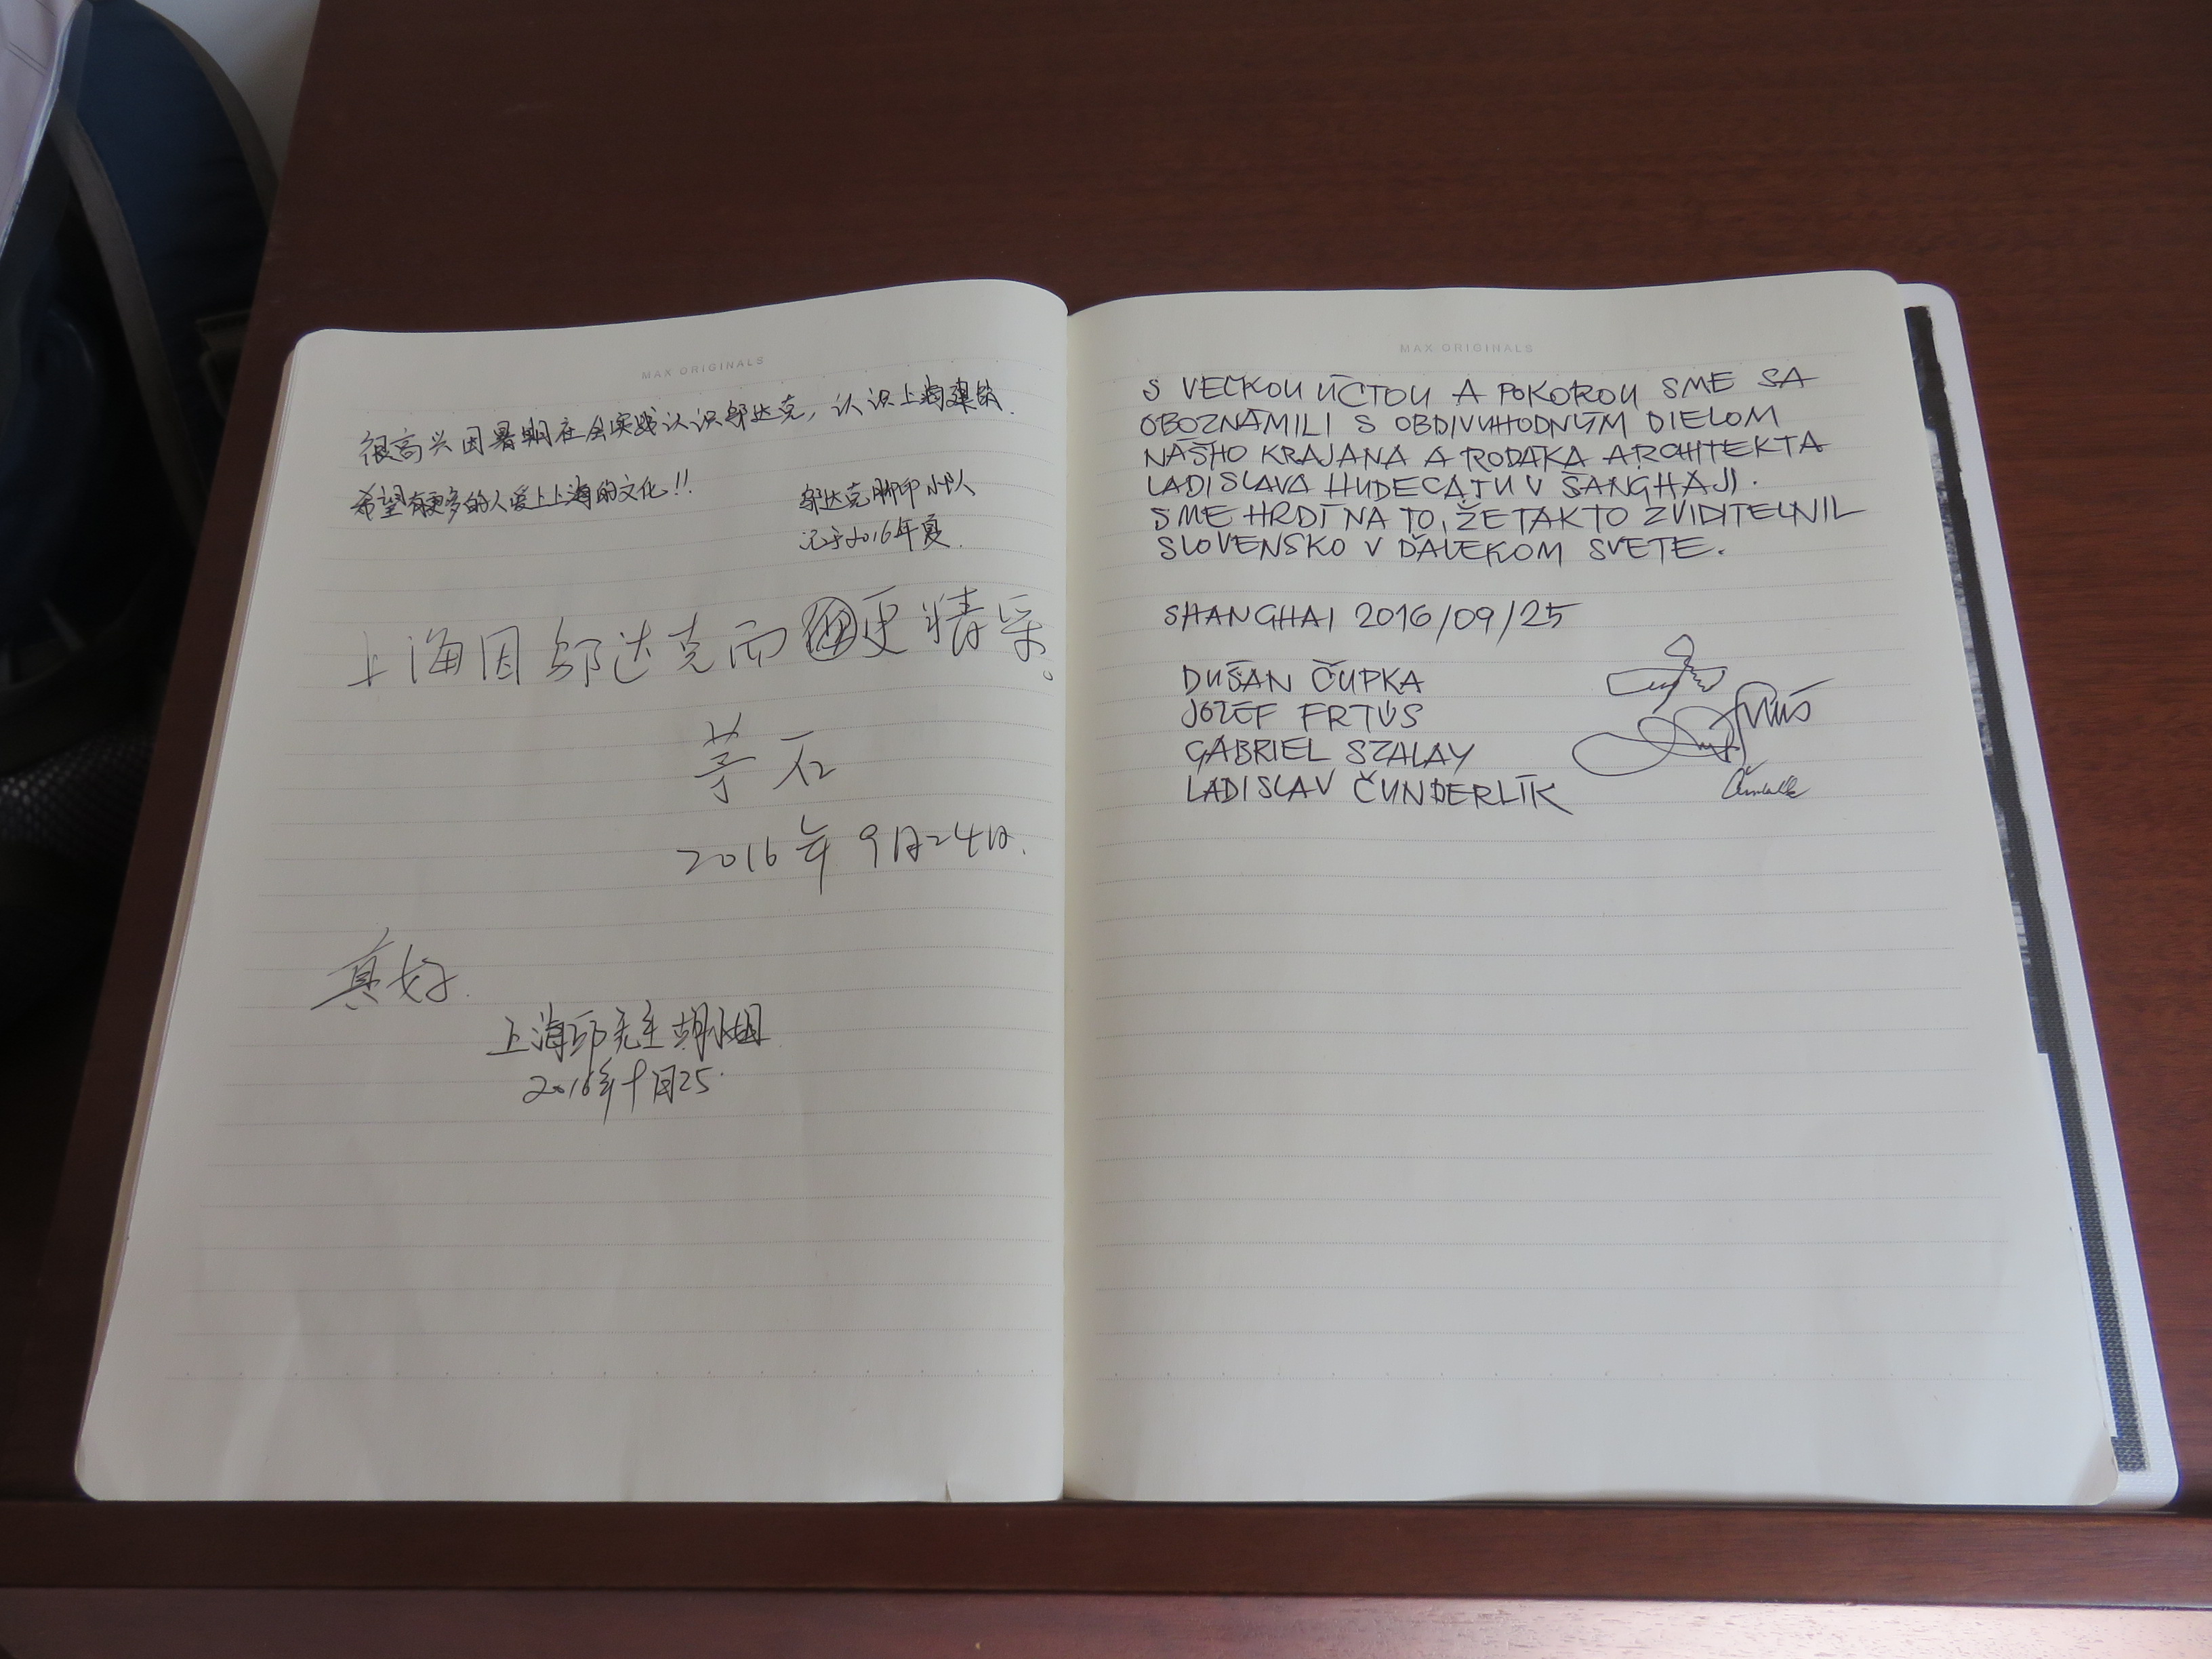 MAX ORIGINALS
很高兴因暑期社会实践认识邬达克，认识上海建筑.
希望有更多的人爱上上海的文化!!
邬达克脚印小队
记于2016年夏.
上海因邬达克而更精采。
茅石
2016年9月24日.
真好.
上海邱先生胡小姐
2016年9月25.
MAX ORIGINALS
S VEĽKOU ÚCTOU A POKOROU SME SA
OBOZNÁMILI S OBDIVUHODNÝM DIELOM
NÁŠHO KRAJANA A RODÁKA ARCHITEKTA
LADISLAVA HUDECA TU V ŠANGHAJI.
SME HRDÍ NA TO, ŽE TAKTO ZVIDITEĽNIL
SLOVENSKO V ĎALEKOM SVETE.
SHANGHAI 2016/09/25
DUŠAN ČUPKA
JOZEF FRTÚS
GABRIEL SZALAY
LADISLAV ČUNDERLÍK